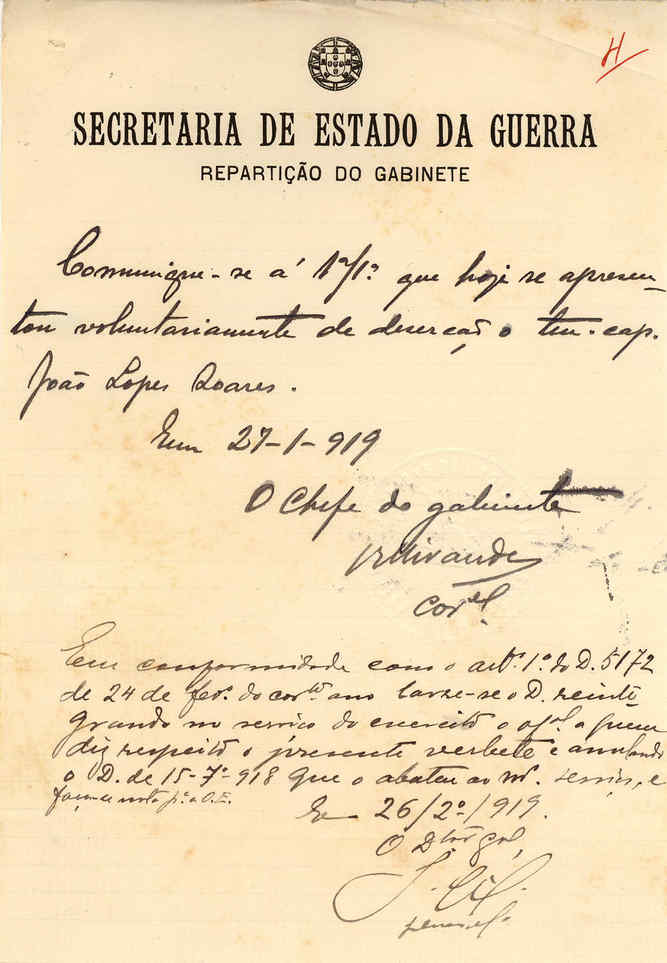 H
SECRETARIA DE ESTADO DA GUERRA
REPARTIÇÃO DO GABINETE
Comunique-se á 1ª/1ª que hoje se apresen-
tou voluntariamente de deserção o ten.-cap.
João Lopes Soares.
Em 27-1-919
O Chefe do gabinete
Miranda
Cor.el
Em conformidade com o artº. 1º. do D. 5172
de 24 de fevº. do corte ano lavre-se o D. reinte-
grando no serviço do exercito o ofal a quem
diz respeito o presente verbete e anulando
o D. de 15-7º-918 que o abateu ao serviço, e
faça-se nota pª a O.E.
Em 26/2º/919.
O Dtor gal,
general